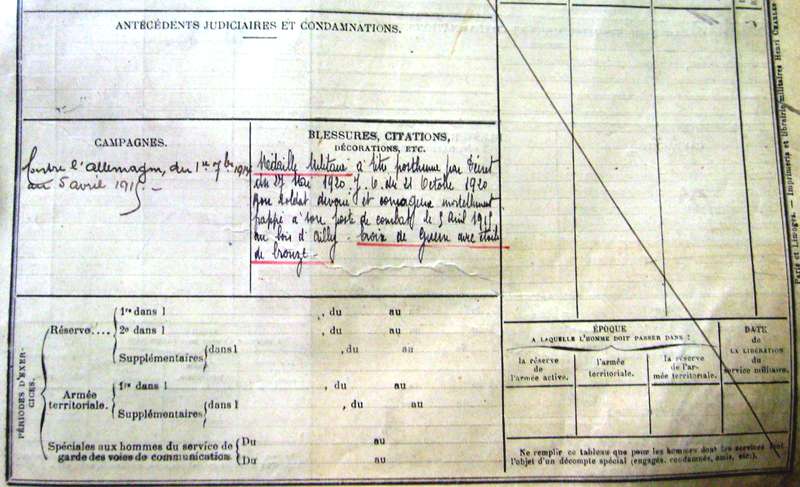 ANTÉCÉDENTS JUDICIAIRES ET CONDAMNATIONS.
CAMPAGNES.
Contre l'Allemagne, du 1er 7bre 1914
au 5 avril 1915. —
BLESSURES, CITATIONS,
DÉCORATIONS, ETC.
Médaille Militaire à titre posthume par Décret
du 27 Mai 1920. J. O. du 21 Octobre 1920
Bon soldat dévoué et courageux mortellement
frappé à son poste de combat le 5 Avril 1915
au bois d'Ailly - Croix de Guerre avec étoile
de bronze -
PÉRIODES D'EXER-
CICES.
Réserve....
1re dans l , du au
2e dans l , du au
Supplémentaires dans l , du au
Armée
territoriale.
1re dans l , du au
Supplémentaires dans l , du au
Spéciales aux hommes du service de
garde des voies de communication.
Du au
Du au
ÉPOQUE
A LAQUELLE L'HOMME DOIT PASSER DANS :
la réserve
de
l'armée active.
l'armée
territoriale.
la réserve
de l'ar-
mée territoriale.
DATE
de
LA LIBÉRATION
du
service militaire.
Ne remplir ce tableau que pour les hommes dont les services font
l'objet d'un décompte spécial (engagés, condamnés, omis, etc.).
Paris et Limoges. — Imprimerie et librairie militaires Henri CHARLES